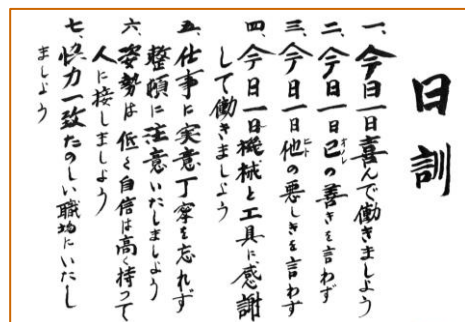 日訓
一、今日一日喜んで働きましよう
二、今日一日己の善きを言わず
オレ
三、今日一日他の悪しきを言わず
ヒト
四、今日一日機械と工具に感謝
して働きましよう
五、仕事に実意丁寧を忘れず
整頓に注意いたしましよう
六、姿勢は低く自信は高く持って
人に接しましよう
七、協力一致たのしい職場にいたし
ましよう